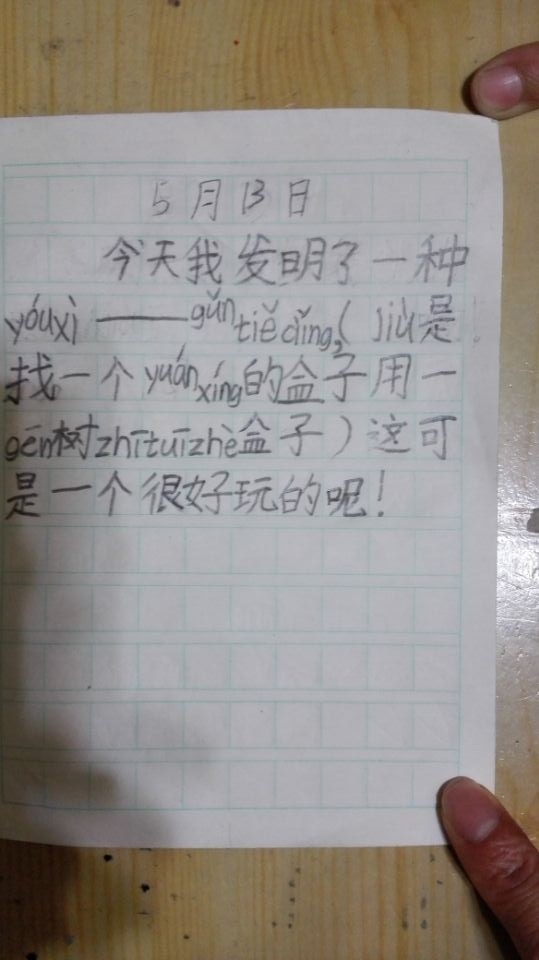 5月13日
今天我发明了一种
yóuxì——gǔntiědǐng,(jiù是
找一个yuánxíng的盒子用一
gēn树zhītuīzhè盒子)这可
是一个很好玩的呢!